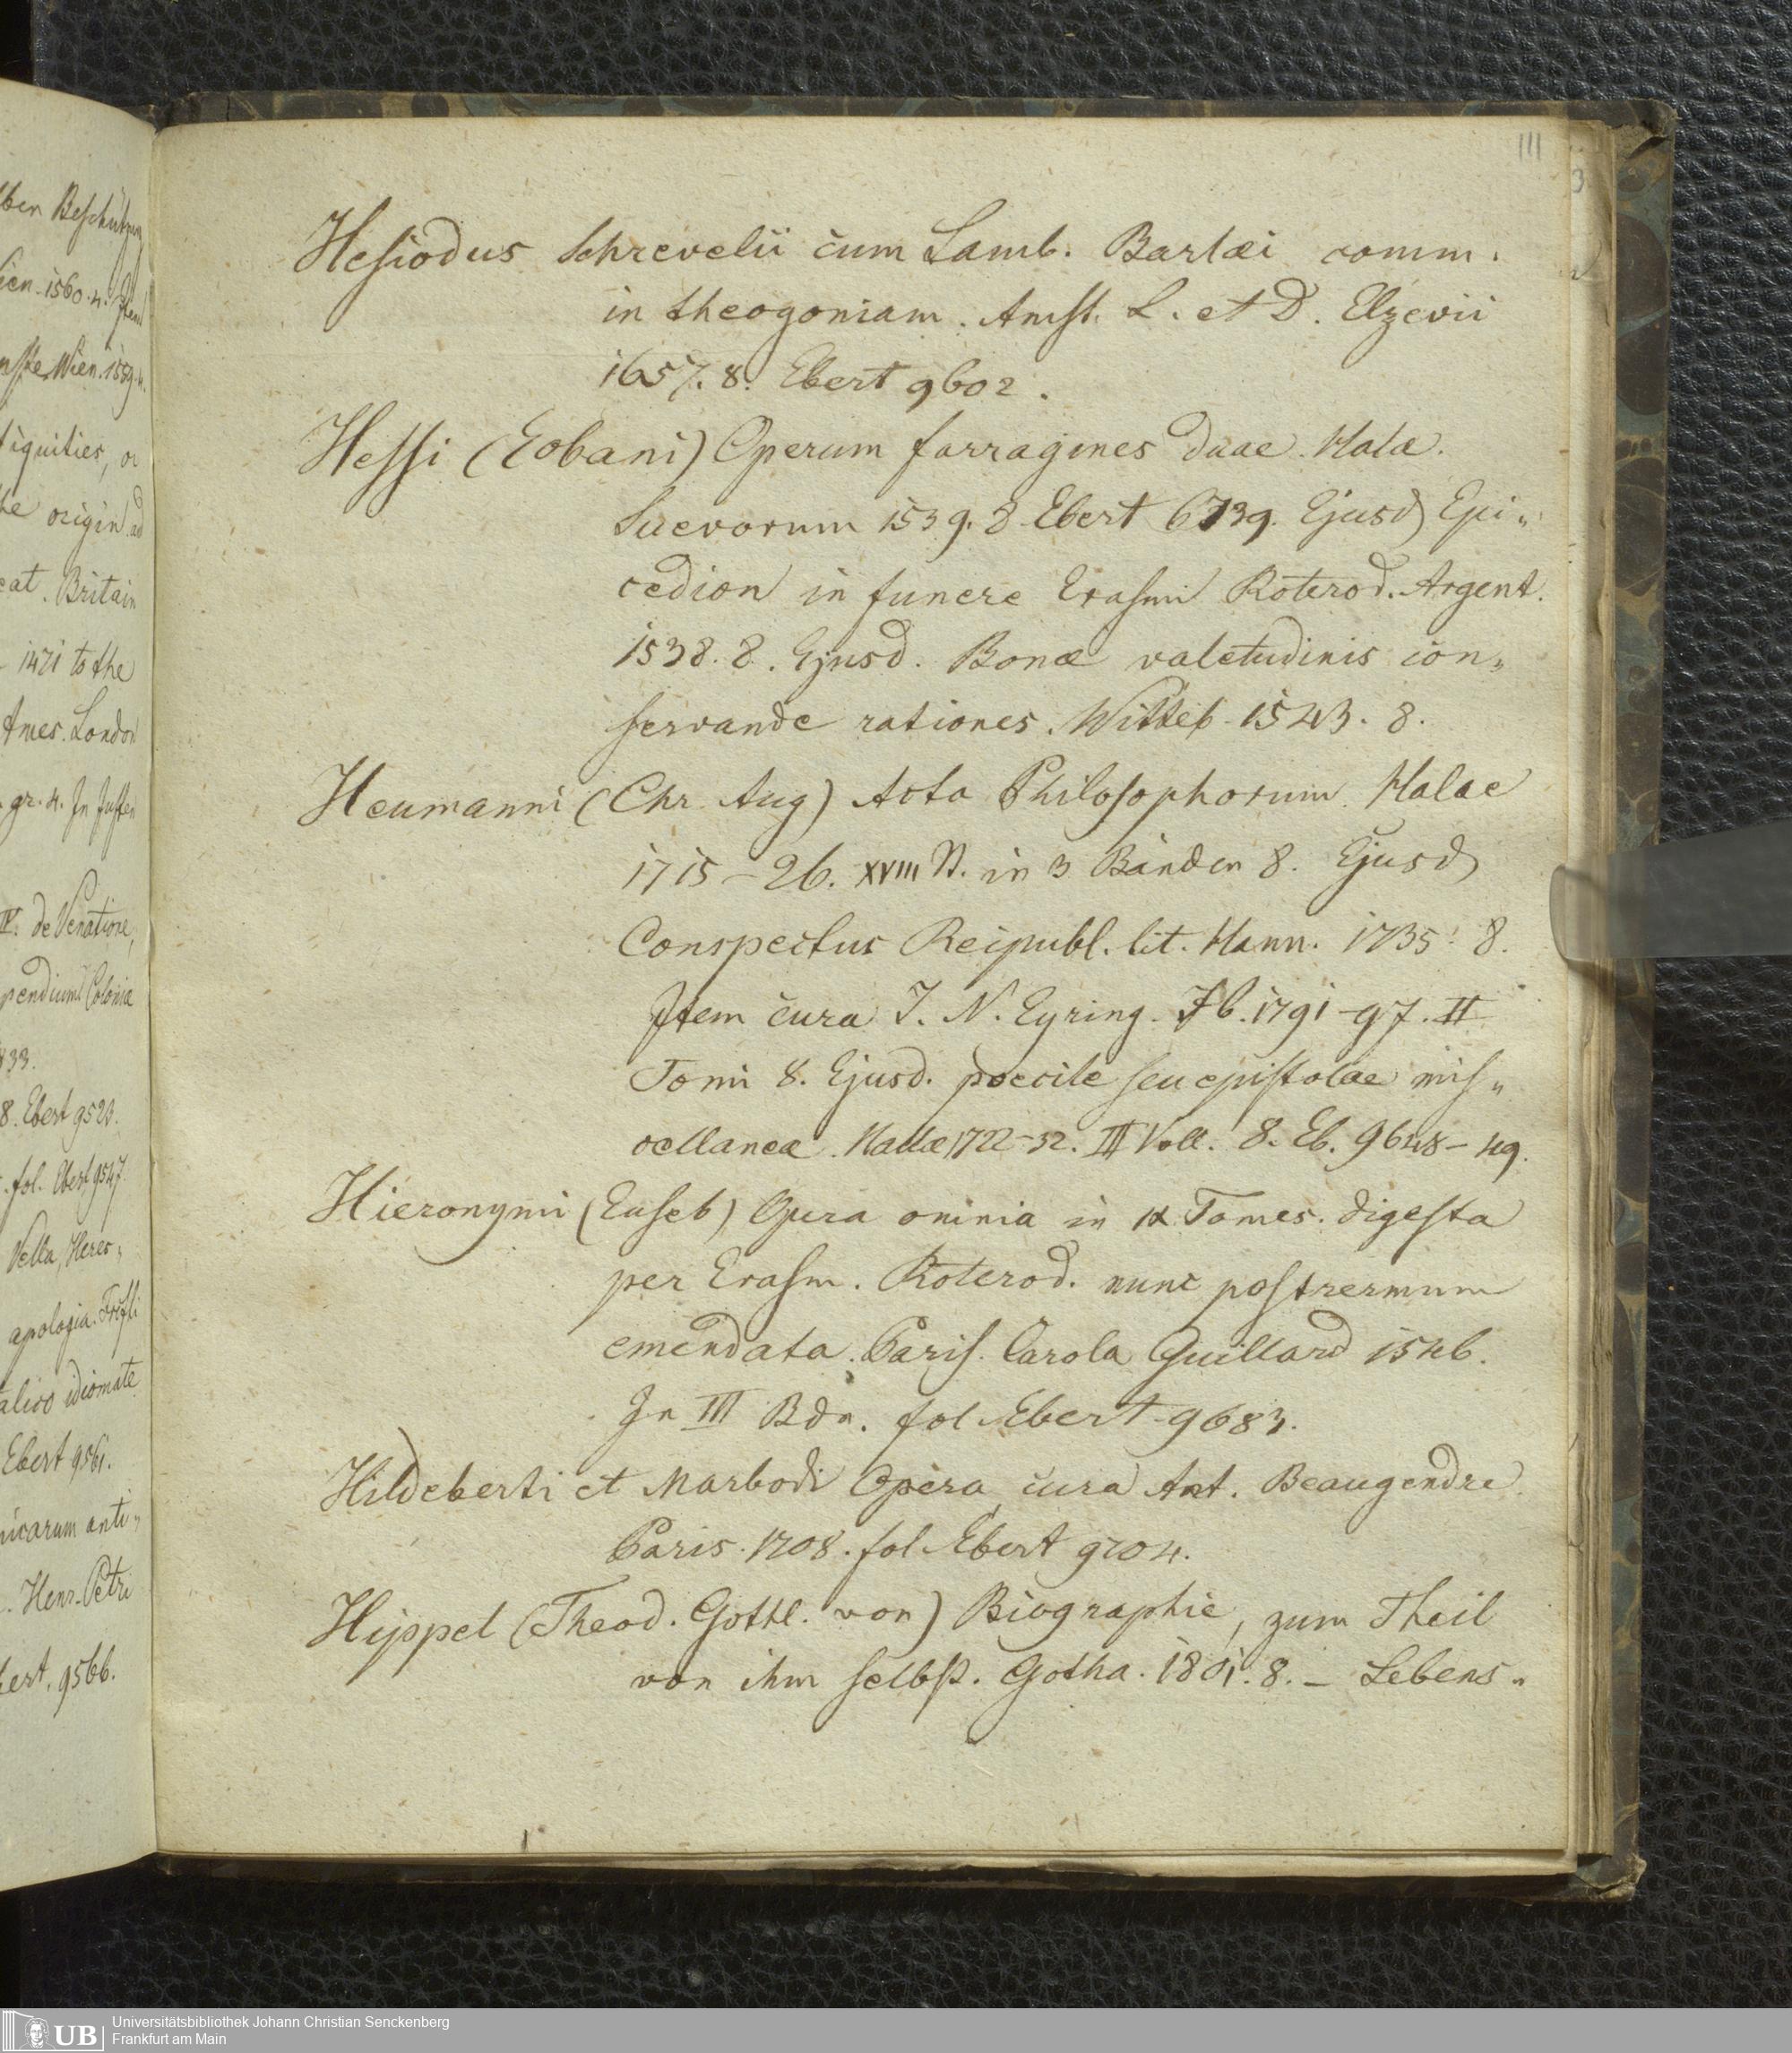 ber Beschützung
ien. 1560. 4. Item
nste Wien. 1559. 4.
tiquities, or
he origin ad
eat. Britain
1471 to the
Ames. London
gr. 4. In Juften
IV. de Venatione,
pendium Coloniæ
533.
8. Ebert 9520.
fol. Ebert 9547.
Vella, Heres„
apologia. Frcfti
talico idiomate
Ebert 9561.
nicarum anti„
. Henr. Petri
bert. 9566.
111
3
Hesiodus Schrevelii cum Lamb. Barlæi comm.
in theogoniam. Amst. L. et D. Elzevii
1657. 8. Ebert 9602.
Hessi (Eobani) Operum farragines duae. Hala.
Suevorum 1539. 8 Ebert 6739. Ejusd Epi„
cedion in funere Erasmi Roterod. Argent.
1538. 8. Ejusd. Bonæ valetudinis con„
servande rationes. Witteb. 1543. 8.
Heumanni (Chr. Aug) Acta Philosophorum. Halae
1715–26. XVIII St. in 3 Bänden 8. Ejusd
Conspectus Reipubl. lit. Hann. 1735. 8.
Item cura J. N. Eyring. Ib. 1791–97. II
Tomi 8. Ejusd. poecile seu epistolae mis„
cellaneæ. Hallæ 1722–32. III Voll. 8. Eb. 9648–49.
Hieronymi (Euseb) Opera omnia in IX Tomes. digesta
per Erasm. Roterod. nunc postremum
emendata. Paris. Carola Guillard 1546.
In III Bdn. fol Ebert 9683.
Hildeberti et Marbodi Opera, cura Ant. Beaugendre.
Paris. 1708. fol Ebert 9704.
Hippel (Theod. Gottl. von) Biographie, zum Theil
von ihm selbst. Gotha. 1801. 8. – Lebens„
UB
Universitätsbibliothek Johann Christian Senckenberg
Frankfurt am Main